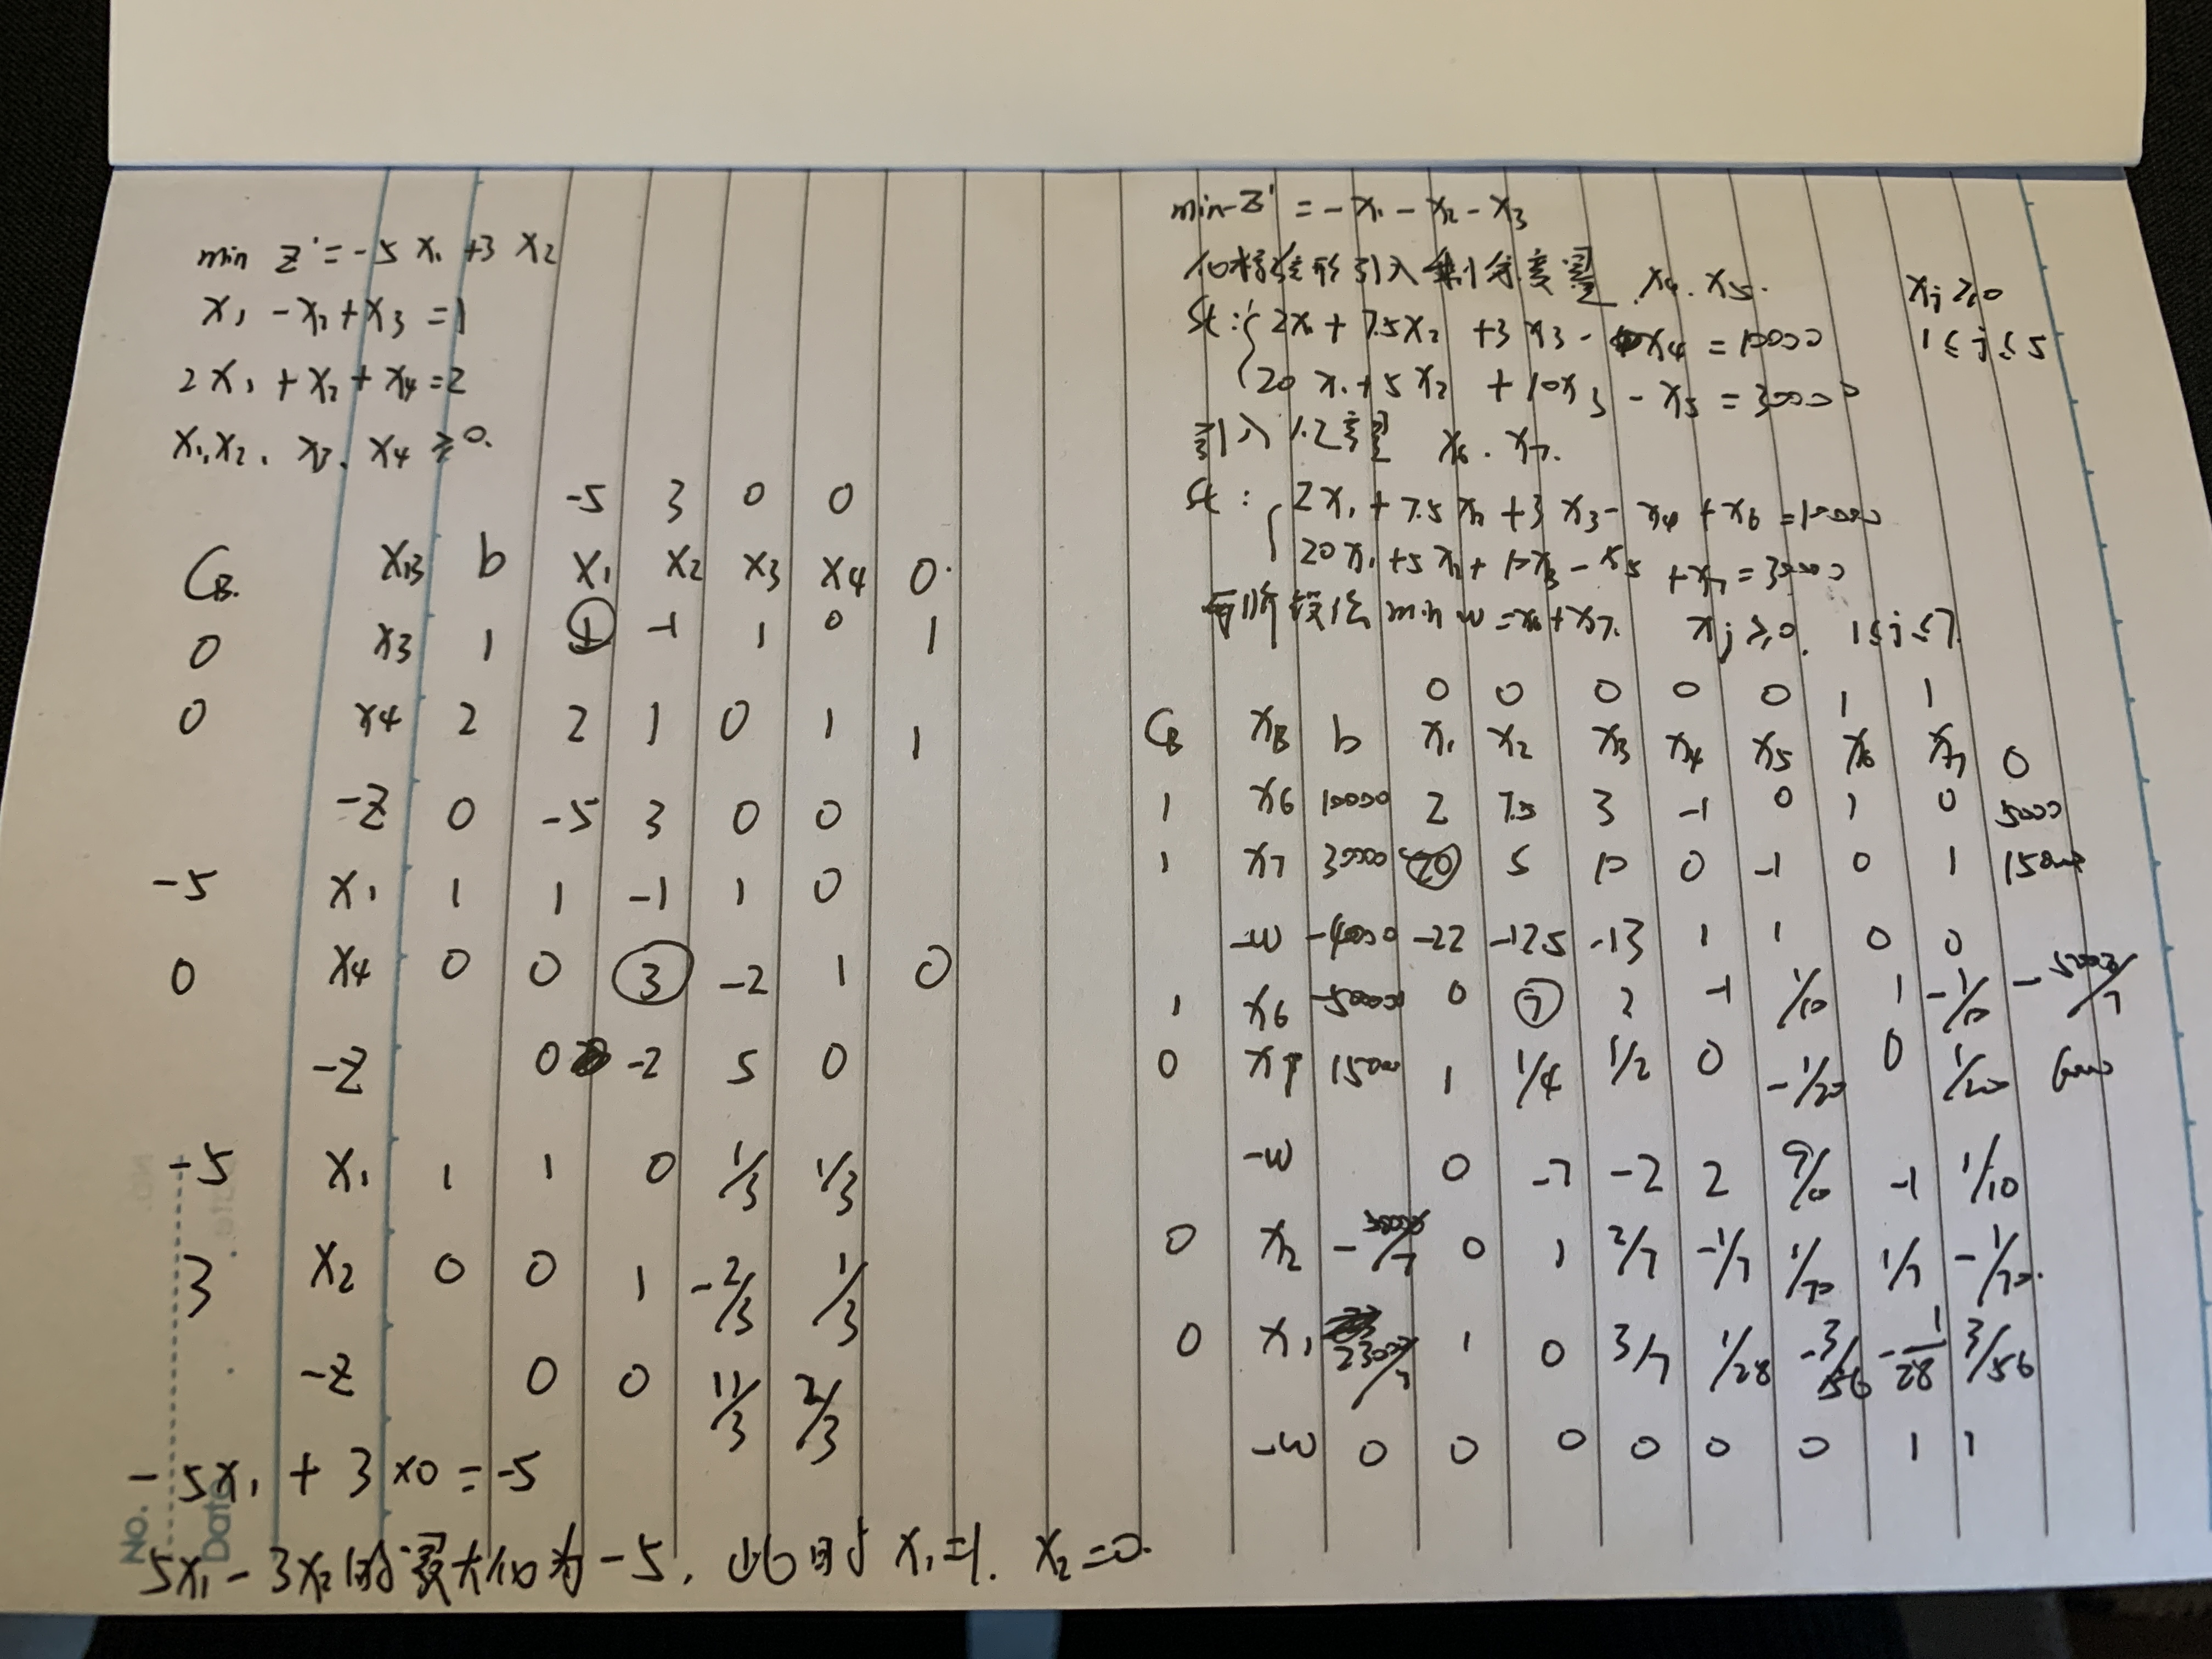 No.
Date
min z' = -5x₁ + 3x₂
x₁ - x₂ + x₃ = 1
2x₁ + x₂ + x₄ = 2
x₁, x₂, x₃, x₄ ≥ 0.
-5 3 0 0
C_B. X_B b x₁ x₂ x₃ x₄ θ.
0 x₃ 1 1 -1 1 0 1
0 x₄ 2 2 1 0 1 1
-z 0 -5 3 0 0
-5 x₁ 1 1 -1 1 0
0 x₄ 0 0 3 -2 1 0
-z 0 -2 5 0
-5 x₁ 1 1 0 1/3 1/3
3 x₂ 0 0 1 -2/3 1/3
-z 0 0 11/3 2/3
-5x₁ + 3×0 = -5
5x₁ - 3x₂ 的最大值为 -5. 此时 x₁=1. x₂=0.
min z' = -x₁ - x₂ - x₃
化标准形引入剩余变量 x₄. x₅.
st: { 2x₁ + 7.5x₂ + 3x₃ - x₄ = 10000
20x₁ + 5x₂ + 10x₃ - x₅ = 30000
xⱼ ≥ 0
1 ≤ j ≤ 5
引入人工变量 x₆. x₇.
st: { 2x₁ + 7.5x₂ + 3x₃ - x₄ + x₆ = 10000
20x₁ + 5x₂ + 10x₃ - x₅ + x₇ = 30000
min w = x₆ + x₇. xⱼ ≥ 0. 1 ≤ j ≤ 7.
0 0 0 0 0 1 1
C_B X_B b x₁ x₂ x₃ x₄ x₅ x₆ x₇ θ
1 x₆ 10000 2 7.5 3 -1 0 1 0 5000
1 x₇ 30000 20 5 10 0 -1 0 1 1500
-w -40000 -22 -12.5 -13 1 1 0 0
1 x₆ 0 7 2 -1 1/10 1 -1/10
0 x₁ 1500 1 1/4 1/2 0 -1/20 0 1/20 6000
-w 0 -7 -2 2 9/10 -1 1/10
0 x₂ 0 1 2/7 -1/7 1/70 1/7 -1/70.
0 x₁ 1 0 3/7 1/28 -3/56 -1/28 3/56
-w 0 0 0 0 0 0 1 1